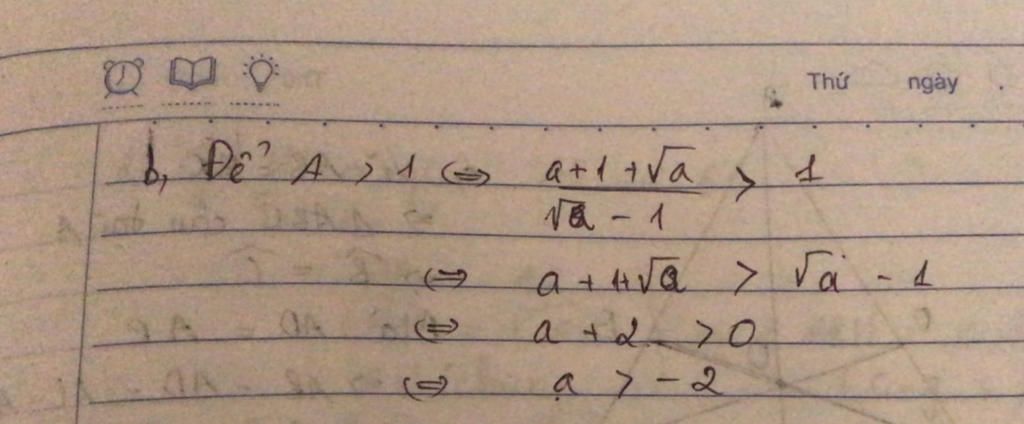 Thứ ngày .
b, Để A > 1 ⇔ (a + 1 + √a)/(√a - 1) > 1
⇔ a + 1+√a > √a - 1
⇔ a + 2 > 0
⇔ a > -2